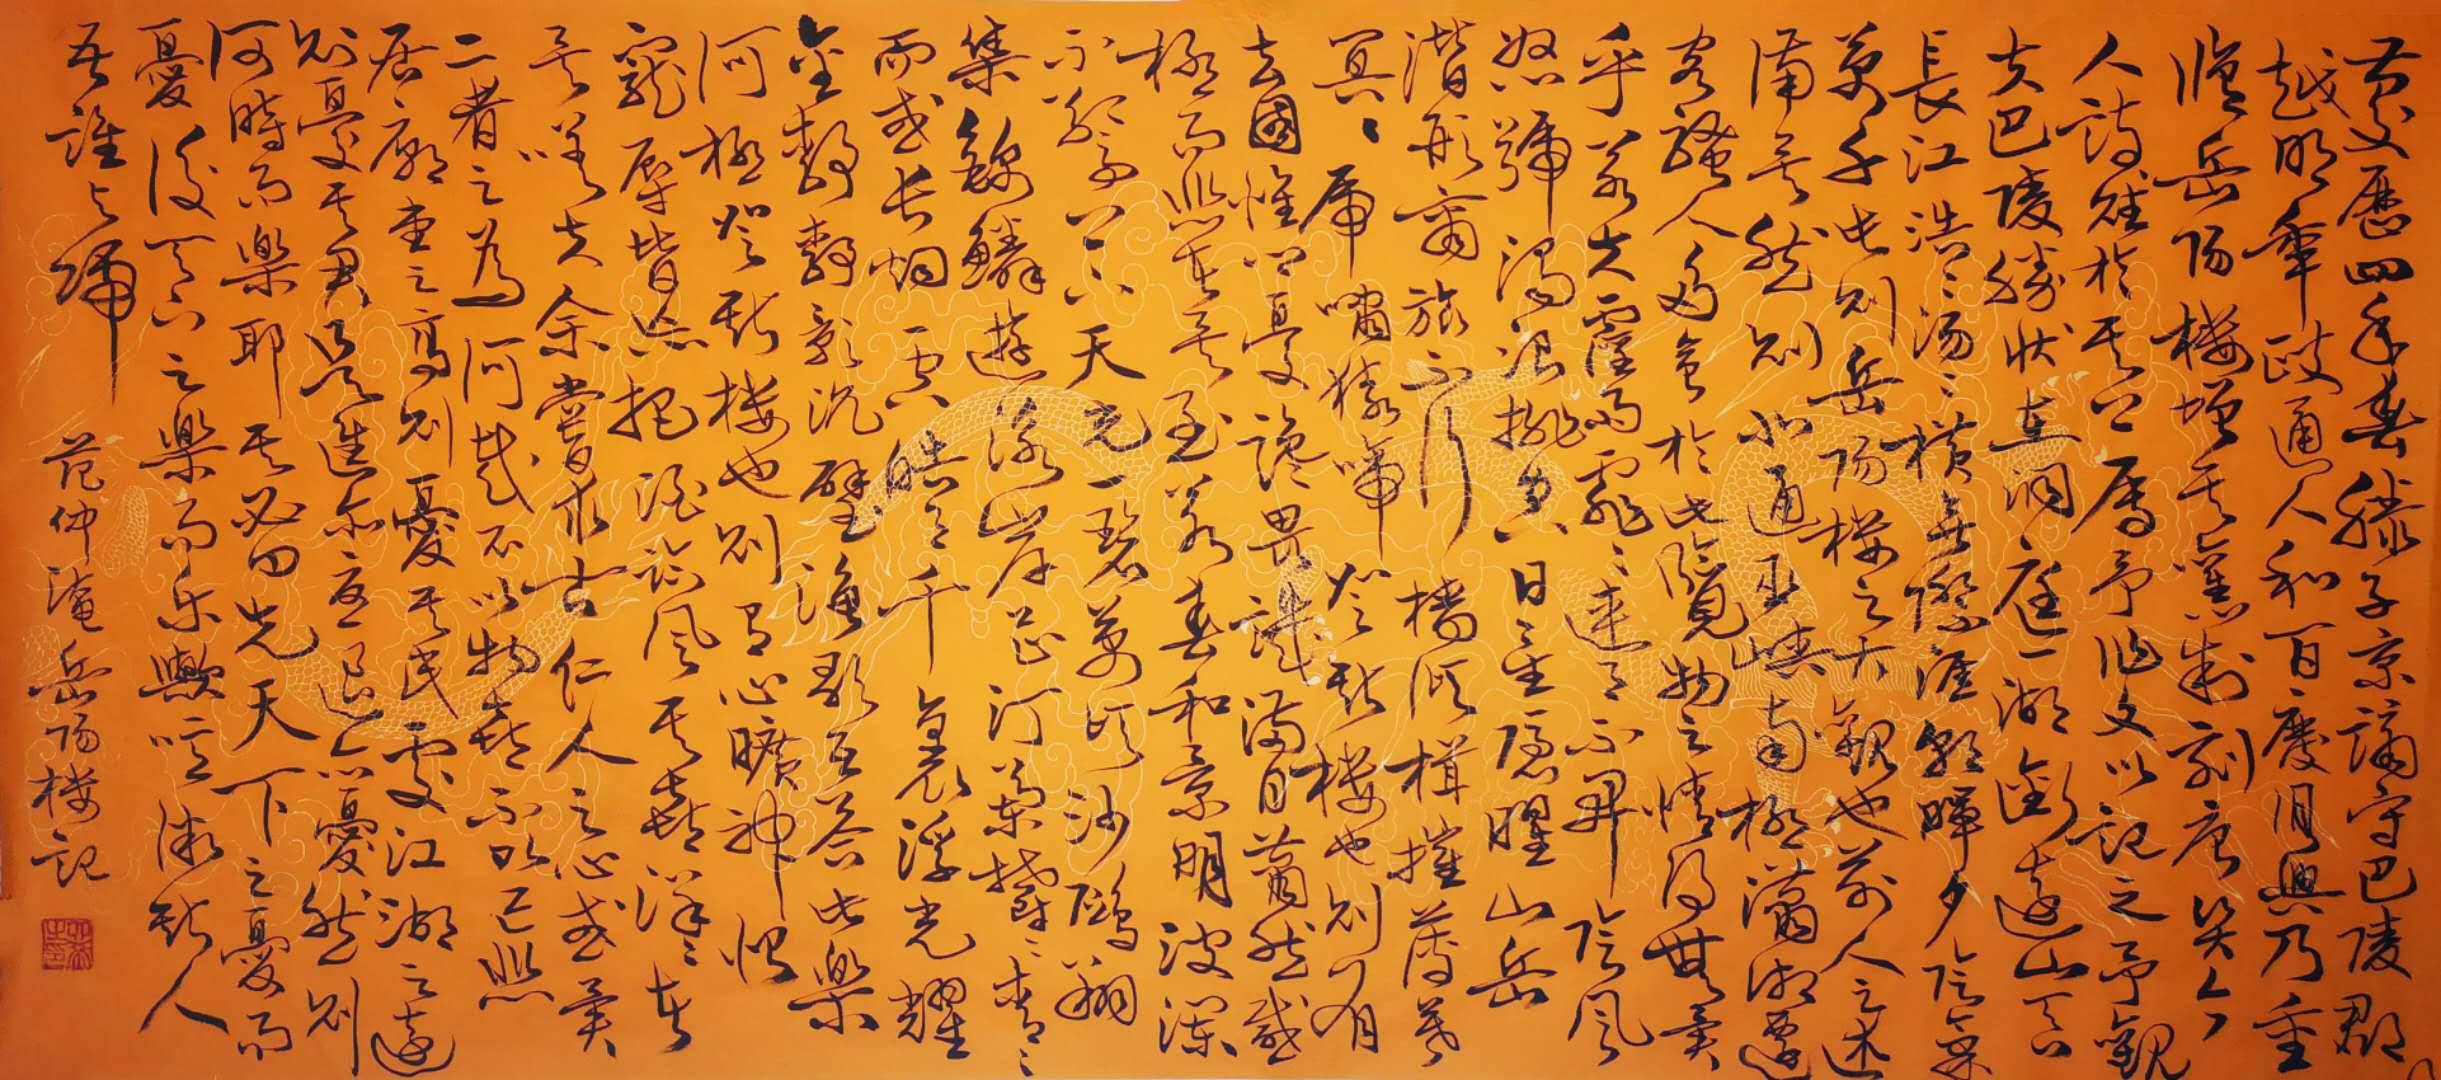 慶歷四年春滕子京謫守巴陵郡
越明年政通人和百廢具興乃重
脩岳陽樓增其舊制刻唐賢今
人詩賦於其上屬予作文以記之予觀
夫巴陵勝狀在洞庭一湖銜遠山吞
長江浩浩湯湯橫無際涯朝暉夕陰氣
萬千此則岳陽樓之大觀也前人之述
備矣然則北通巫峽南極瀟湘遷
客騷人多會於此覽物之情得無異
乎若夫霪雨霏霏連月不開陰風
怒號濁浪排空日星隱曜山岳
潛形商旅不行檣傾楫摧薄暮
冥冥虎嘯猿啼登斯樓也則有
去國懷鄉憂讒畏譏滿目蕭然感
極而悲者矣至若春和景明波瀾
不驚上下天光一碧萬頃沙鷗翔
集錦鱗游泳岸芷汀蘭鬱鬱青青
而或長煙一空皓月千里浮光耀
金靜影沉璧漁歌互答此樂
何極登斯樓也則有心曠神怡
寵辱皆忘把酒臨風其喜洋洋者
矣嗟夫余嘗求古仁人之心或異
二者之為何哉不以物喜不以己悲
居廟堂之高則憂其民處江湖之遠
則憂其君是進亦憂退亦憂然則
何時而樂耶其必曰先天下之憂而
憂後天下之樂而樂歟噫微斯人
吾誰與歸
范仲淹岳陽樓記